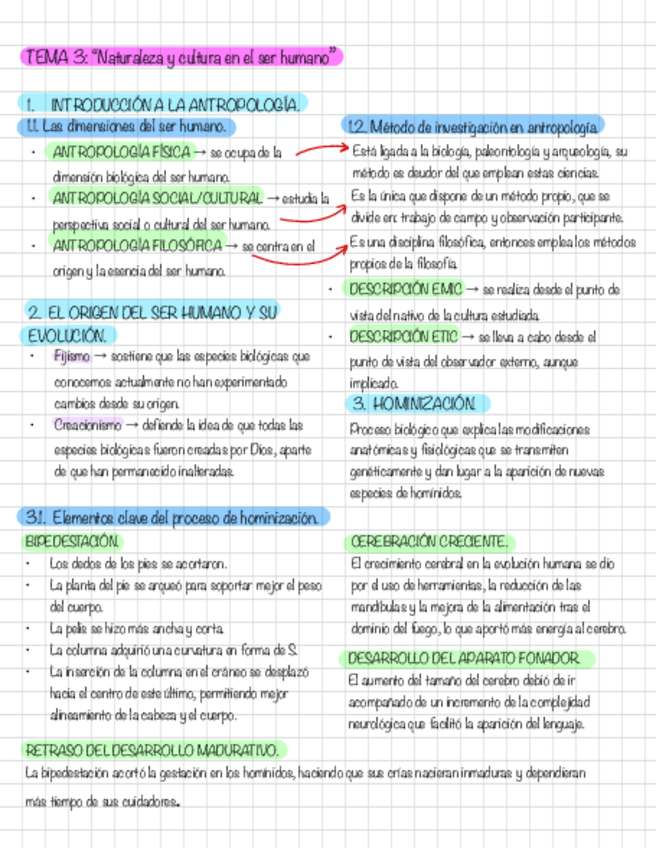 TEMA 3: "Naturaleza y cultura en el ser humano"
1. INTRODUCCIÓN A LA ANTROPOLOGÍA.
1.1. Las dimensiones del ser humano.
· ANTROPOLOGÍA FÍSICA → se ocupa de la
dimensión biológica del ser humano.
· ANTROPOLOGÍA SOCIAL/CULTURAL → estudia la
perspectiva social o cultural del ser humano.
· ANTROPOLOGÍA FILOSÓFICA → se centra en el
origen y la esencia del ser humano.
1.2. Método de investigación en antropología.
Está ligada a la biología, paleontología y arqueología, su
método es deudor del que emplean estas ciencias.
Es la única que dispone de un método propio, que se
divide en: trabajo de campo y observación participante.
Es una disciplina filosófica, entonces emplea los métodos
propios de la filosofía.
· DESCRIPCIÓN EMIC → se realiza desde el punto de
vista del nativo de la cultura estudiada.
· DESCRIPCIÓN ETIC → se lleva a cabo desde el
punto de vista del observador externo, aunque
implicado.
2. EL ORIGEN DEL SER HUMANO Y SU
EVOLUCIÓN.
· Fijismo → sostiene que las especies biológicas que
conocemos actualmente no han experimentado
cambios desde su origen.
· Creacionismo → defiende la idea de que todas las
especies biológicas fueron creadas por Dios, aparte
de que han permanecido inalteradas.
3. HOMINIZACIÓN.
Proceso biológico que explica las modificaciones
anatómicas y fisiológicas que se transmiten
genéticamente y dan lugar a la aparición de nuevas
especies de homínidos.
3.1. Elementos clave del proceso de hominización.
BIPEDESTACIÓN.
· Los dedos de los pies se acortaron.
· La planta del pie se arqueó para soportar mejor el peso
del cuerpo.
· La pelvis se hizo más ancha y corta.
· La columna adquirió una curvatura en forma de S.
· La inserción de la columna en el cráneo se desplazó
hacia el centro de este último, permitiendo mejor
alineamiento de la cabeza y el cuerpo.
CEREBRACIÓN CRECIENTE.
El crecimiento cerebral en la evolución humana se dio
por el uso de herramientas, la reducción de las
mandíbulas y la mejora de la alimentación tras el
dominio del fuego, lo que aportó más energía al cerebro.
DESARROLLO DEL APARATO FONADOR.
El aumento del tamaño del cerebro debió de ir
acompañado de un incremento de la complejidad
neurológica que facilitó la aparición del lenguaje.
RETRASO DEL DESARROLLO MADURATIVO.
La bipedestación acortó la gestación en los homínidos, haciendo que sus crías nacieran inmaduras y dependieran
más tiempo de sus cuidadores.